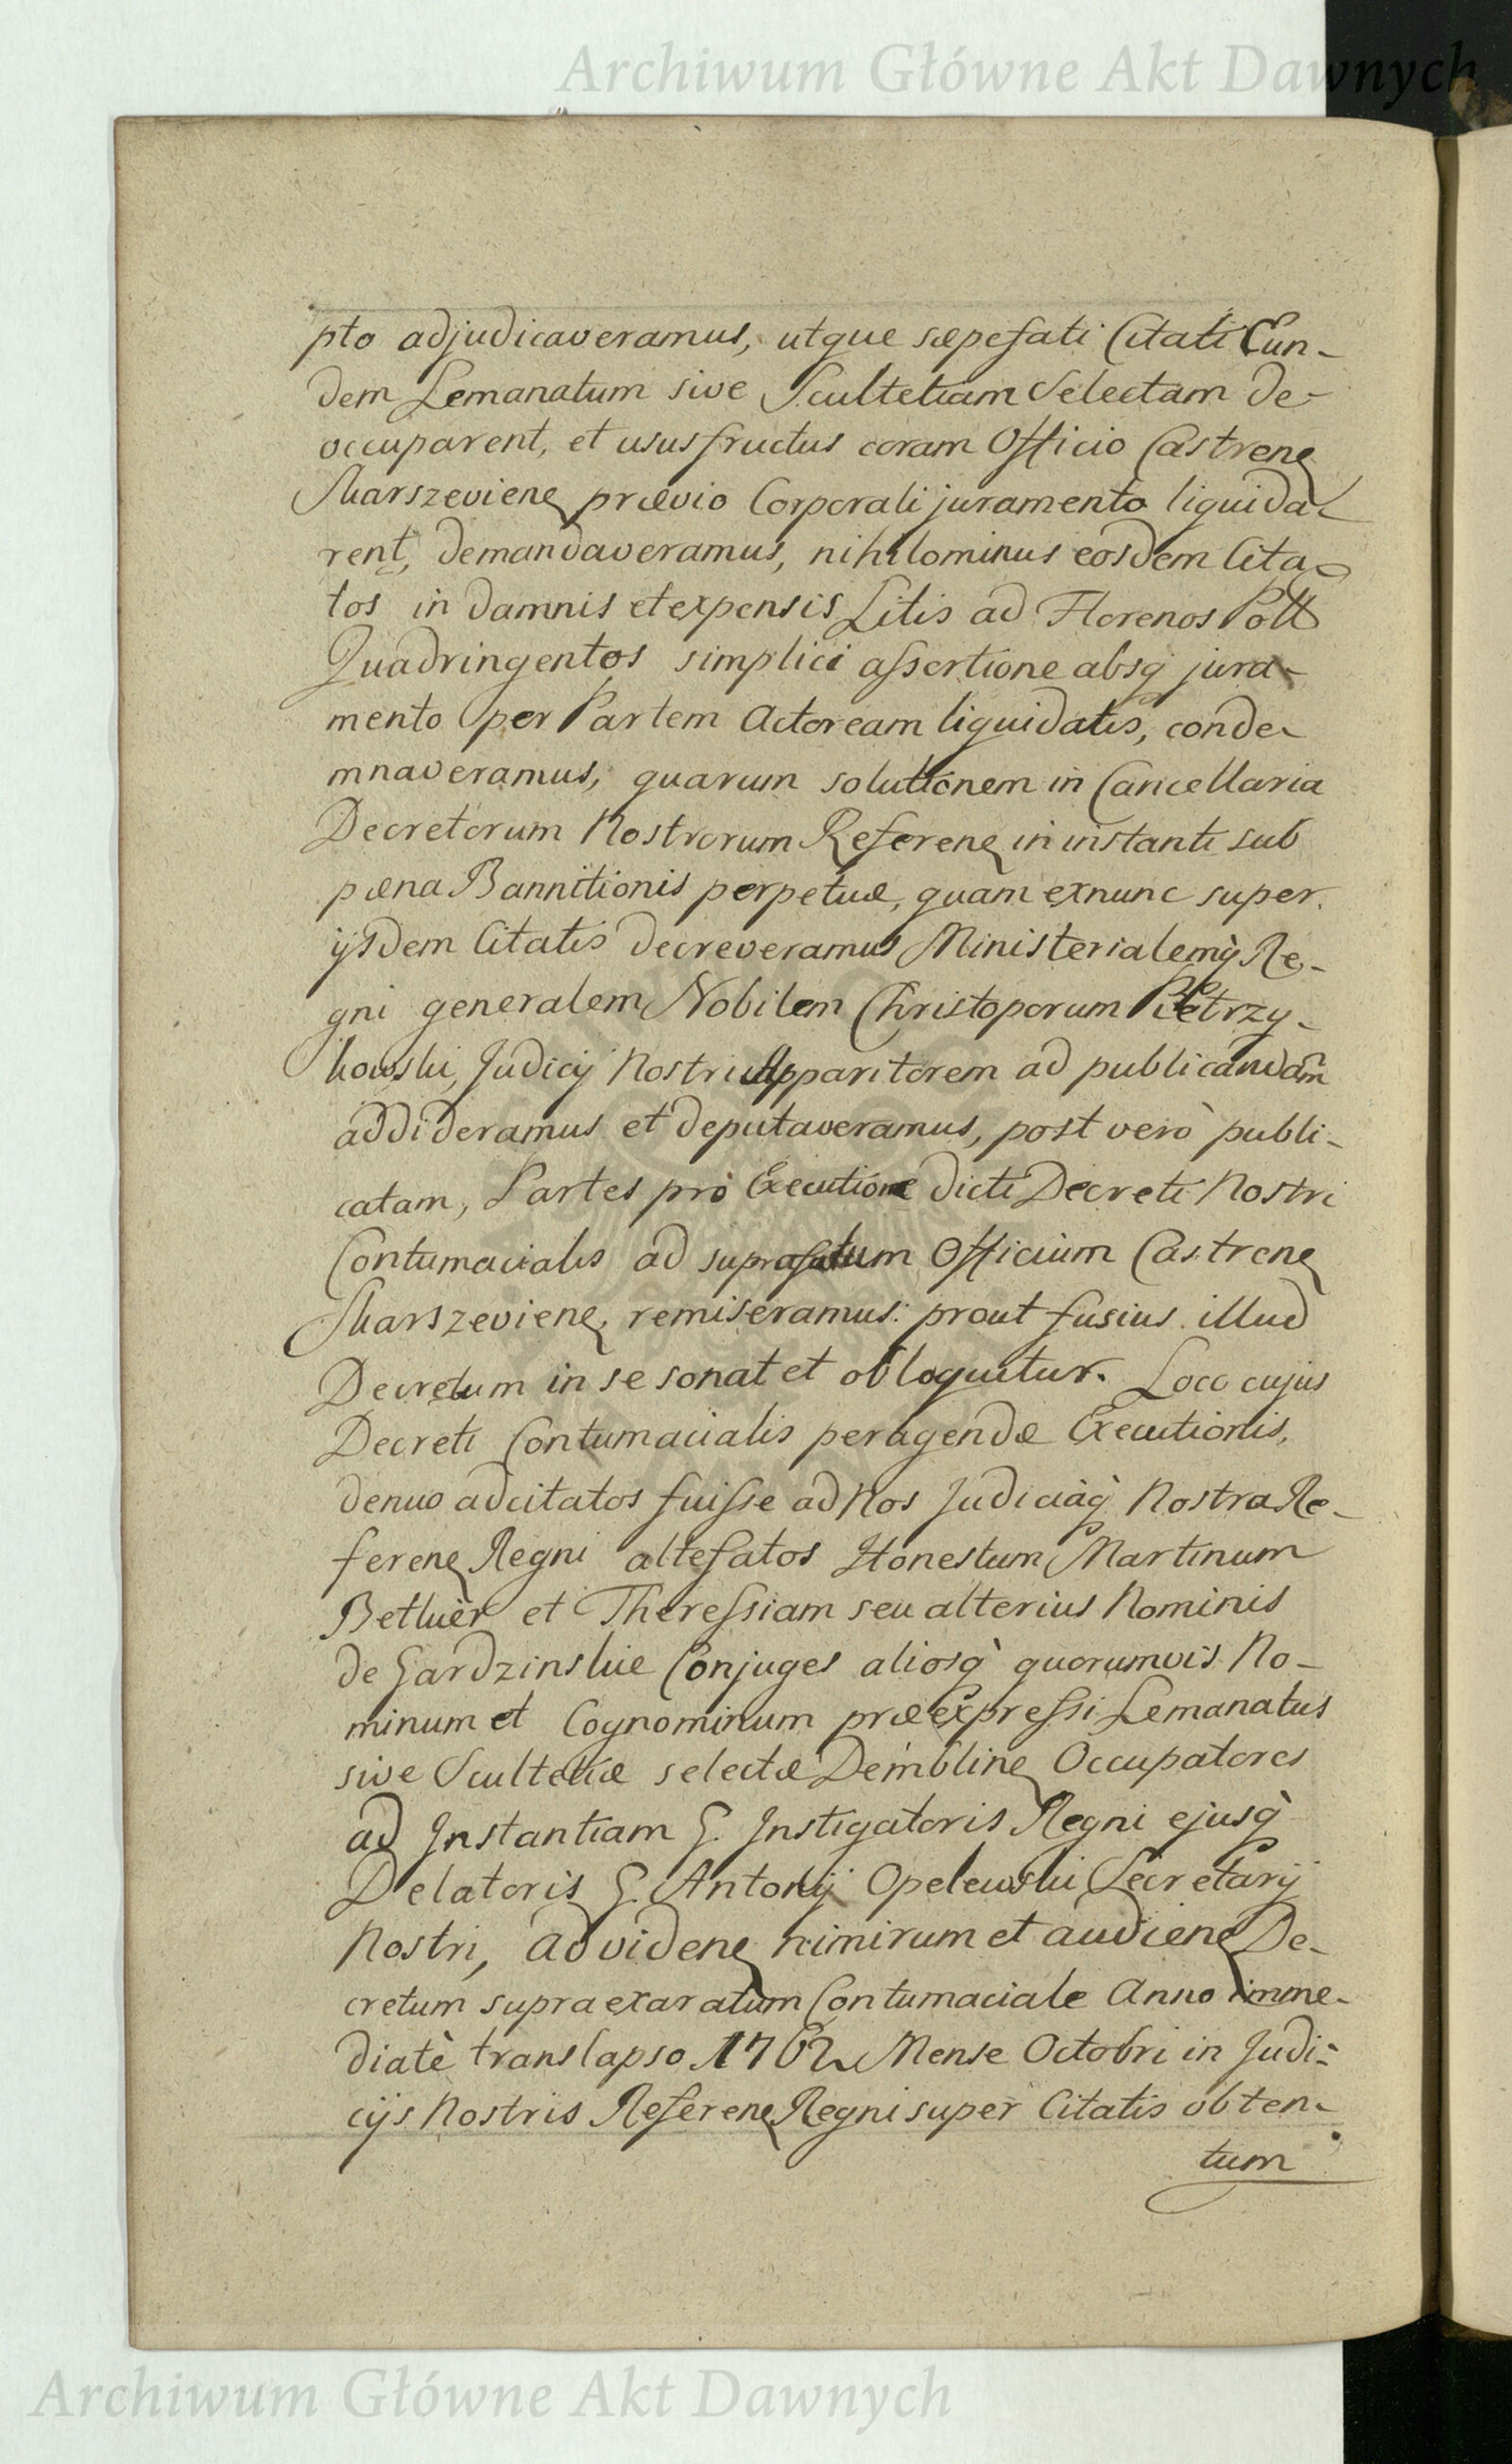 Archiwum Główne Akt Dawnych
pto adjudicaveramus, utque sæpefati Citati Eun-
dem Lemanatum sive Scultetiam Selectam de-
occuparent, et ususfructus coram Officio Castrenẽ
Skarszevienẽ prævio Corporali juramento liquida-
rent, demandaveramus, nihilominus eosdem Cita-
tos in damnis et expensis Litis ad Florenos Poll
Quadringentos simplici assertione absq̀ jura-
mento per Partem Actoream liquidatis, conde-
mnaveramus, quarum solutionem in Cancellaria
Decretorum Nostrorum Referenẽ in instanti sub
pæna Bannitionis perpetuæ, quam exnunc super
ijsdem Citatis decreveramus Ministerialemq̀ Re-
gni generalem Nobilem Christoporum Pietrzy-
kowski, Judicij Nostri Apparitorem ad publicandam
addideramus et deputaveramus, post verò publi-
catam, Partes prò Executione dicti Decreti Nostri
Contumacialis ad suprafatum Officium Castrenẽ
Skarszevienẽ, remiseramus: prout fusius illud
Decretum in se sonat et obloquitur. Loco cujus
Decreti Contumacialis peragendæ Executionis,
denuo adcitatos fuisse ad Nos Judiciaq̀ Nostra Re-
ferenẽ Regni altefatos Honestum Martinum
Betkier et Theressiam seu alterius Nominis
de Gardzinskie Conjuges aliosq̀ quorumvis No-
minum et Cognominum præexpressi Lemanatus
sive Scultetiæ selectæ Dembline Occupatores
ad Instantiam G. Instigatoris Regni ejusq̀
Delatoris G. Antonij Opelewski Secretarij
Nostri, ad videnẽ nimirum et audienẽ De-
cretum supraexaratum Contumaciale Anno imme-
diatè translapso 1762 Mense Octobri in Judi-
cijs Nostris Referenẽ Regni super Citatis obten-
tum
Archiwum Główne Akt Dawnych